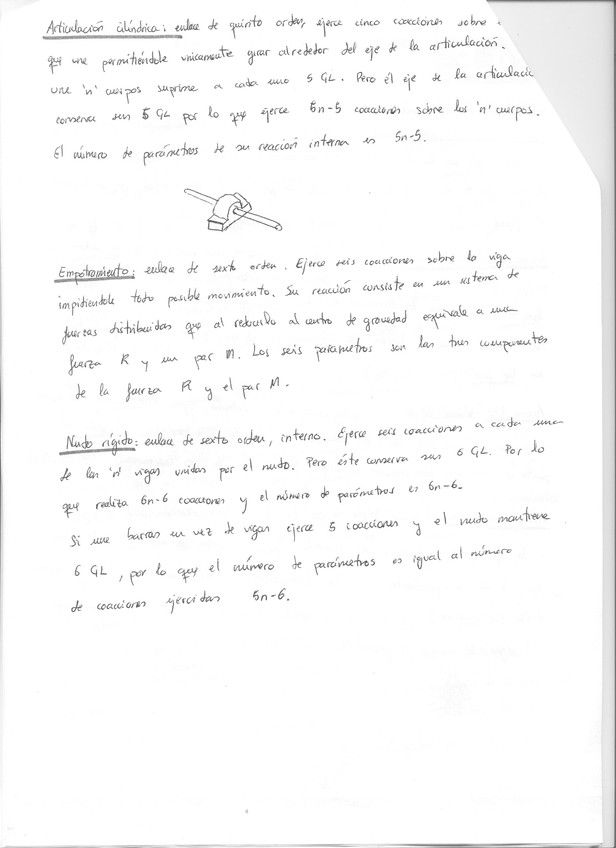 Articulación cilíndrica: enlace de quinto orden, ejerce cinco coacciones sobre
que une permitiéndole unicamente girar alrededor del eje de la articulación.
une 'n' cuerpos suprime a cada uno 5 GL. Pero él eje de la articulació
conserva sus 5 GL por lo que ejerce 5n-5 coacciones sobre los 'n' cuerpos.
El número de parámetros de su reacción interna es 5n-5.
Empotramiento: enlace de sexto orden. Ejerce seis coacciones sobre la viga
impidiendole todo posible movimiento. Su reacción consiste en un sistema de
fuerzas distribuidas que al reducirlo al centro de gravedad equivale a una
fuerza R y un par M. Los seis parámetros son las tres componentes
de la fuerza R y el par M.
Nudo rígido: enlace de sexto orden, interno. Ejerce seis coacciones a cada una
de las 'n' vigas unidas por el nudo. Pero éste conserva sus 6 GL. Por lo
que realiza 6n-6 coacciones y el número de parámetros es 6n-6.
Si une barras en vez de vigas ejerce 5 coacciones y el nudo mantiene
6 GL, por lo que el número de parámetros es igual al número
de coacciones ejercidas 5n-6.